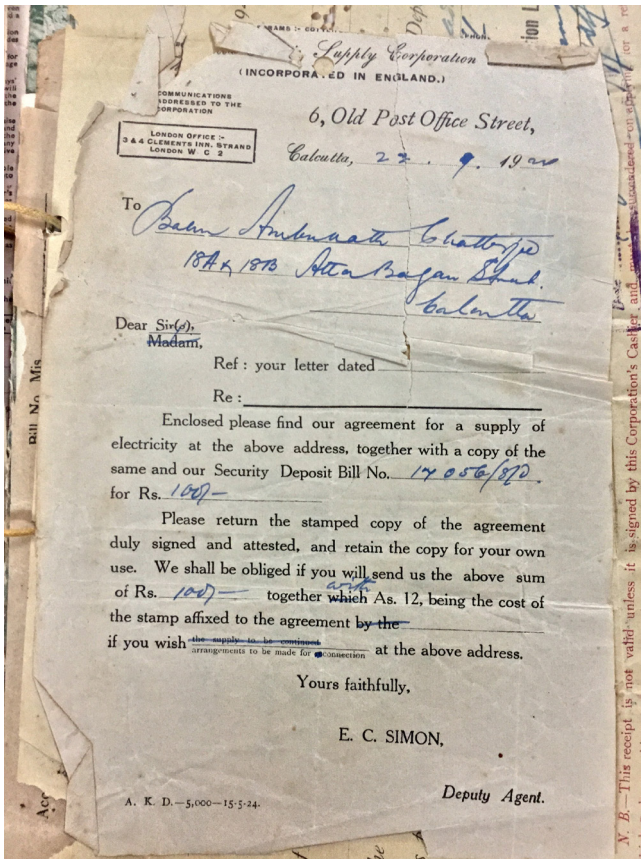 Supply Corporation
(INCORPORATED IN ENGLAND.)
COMMUNICATIONS
ADDRESSED TO THE
CORPORATION
LONDON OFFICE :-
3 & 4 CLEMENTS INN. STRAND
LONDON W C 2
6, Old Post Office Street,
Calcutta, 22 . 9. 192
To
Chatterjee
18A & 18B Street.
Calcutta
Dear Sir(s),
Madam,
Ref : your letter dated
Re :
Enclosed please find our agreement for a supply of
electricity at the above address, together with a copy of the
same and our Security Deposit Bill No.
for Rs. 100/-
Please return the stamped copy of the agreement
duly signed and attested, and retain the copy for your own
use. We shall be obliged if you will send us the above sum
with
of Rs. 100/- together which As. 12, being the cost of
the stamp affixed to the agreement by the
if you wish the supply to be continued
arrangements to be made for connection at the above address.
Yours faithfully,
E. C. SIMON,
Deputy Agent.
A. K. D.—5,000—15-5-24.
N. B.—This receipt is not valid unless it is signed by this Corporation's Cashier and must be surrendered on
Bill No. Mis